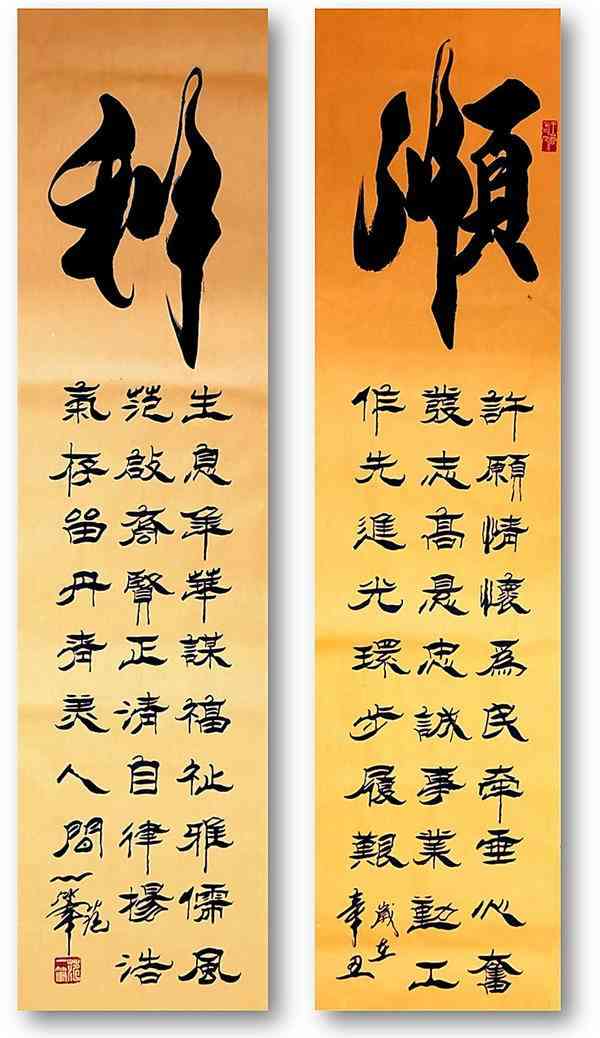 順
許願情懷為民牽垂心奮
發志高懸忠誠事業勳工
作先進光環步履艱
歲在
辛丑
利
生息年華謀福祉雅儒風
范啟裔賢正清自律揚浩
氣存留丹青美人間
范